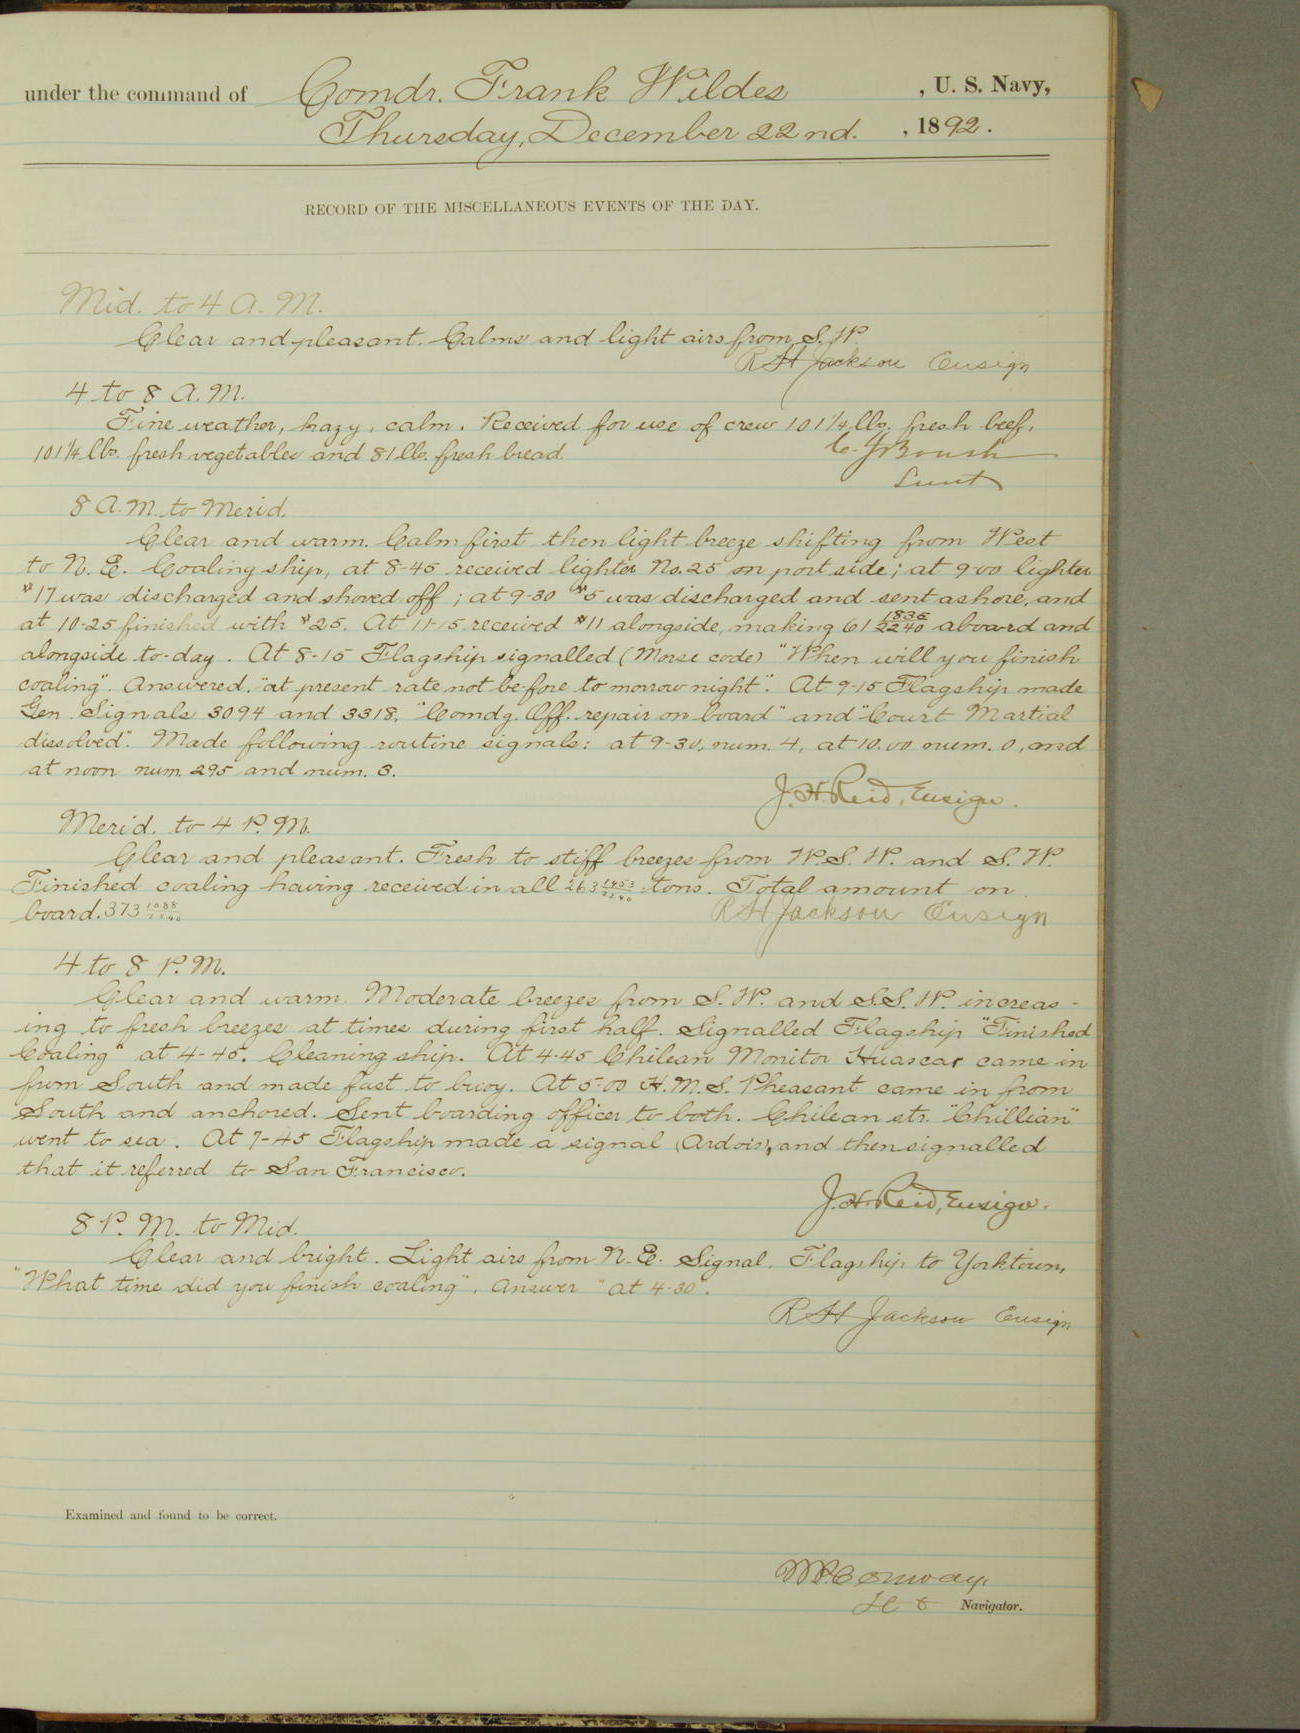 under the command of Comdr. Frank Wildes, U. S. Navy,
Thursday, December 22nd. , 1892.
RECORD OF THE MISCELLANEOUS EVENTS OF THE DAY.
Mid. to 4 A. M.
Clear and pleasant. Calms and light airs from S. W.
R H Jackson Ensign
4 to 8 A. M.
Fine weather, hazy, calm. Received for use of crew 101 1/4 lbs. fresh beef,
101 1/4 lbs. fresh vegetables and 81 lbs. fresh bread.
C. J Boush
Lieut
8 A. M. to Merid.
Clear and warm. Calm first then light breeze shifting from West
to N. E. Coaling ship, at 8-45 received lighter No. 25 on port side; at 9-00 lighter
#17 was discharged and shoved off; at 9-30 #5 was discharged and sent ashore, and
at 10-25 finished with #25. At 11-15 received #11 alongside, making 61 1836/2240 aboard and
alongside to-day. At 8-15 Flagship signalled (Morse code) "When will you finish
coaling". Answered, "at present rate not before to morrow night". At 9-15 Flagship made
Gen. Signals 3094 and 3318, "Comdg. Off. repair on board" and "Court Martial
dissolved". Made following routine signals: at 9-30, num. 4, at 10.00 num. 0, and
at noon num. 295 and num. 3.
J. H. Reid, Ensign.
Merid. to 4 P. M.
Clear and pleasant. Fresh to stiff breezes from W. S. W. and S. W.
Finished coaling having received in all 263 1453/2240 tons. Total amount on
board. 373 1088/2240
R H Jackson Ensign
4 to 8 P. M.
Clear and warm. Moderate breezes from S. W. and S. S. W. increas-
ing to fresh breezes at times during first half. Signalled Flagship "Finished
Coaling" at 4-45. Cleaning ship. At 4-45 Chilean Monitor Huascar came in
from South and made fast to buoy. At 5-00 H. M. S. Pheasant came in from
South and anchored. Sent boarding officer to both. Chilean str. "Chillian"
went to sea. At 7-45 Flagship made a signal (Ardois), and then signalled
that it referred to San Francisco.
J. H. Reid, Ensign.
8 P. M. to Mid.
Clear and bright. Light airs from N. E. Signal. Flagship to Yorktown,
"What time did you finish coaling", Answer "at 4-30".
R H Jackson Ensign
Examined and found to be correct.
W P Conway,
Lt Navigator.